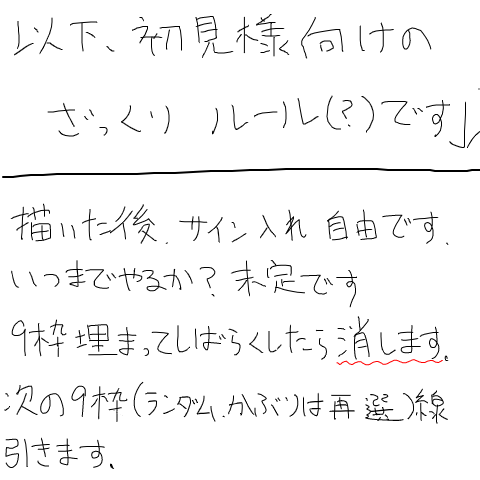 以下、初見様向けの
ざっくり ルール(?)です↓
描いた後、サイン入れ 自由です.
いつまでやるか? 未定です
9枠埋まってしばらくしたら消します.
次の9枠(ランダム、かぶりは再選)線
引きます.